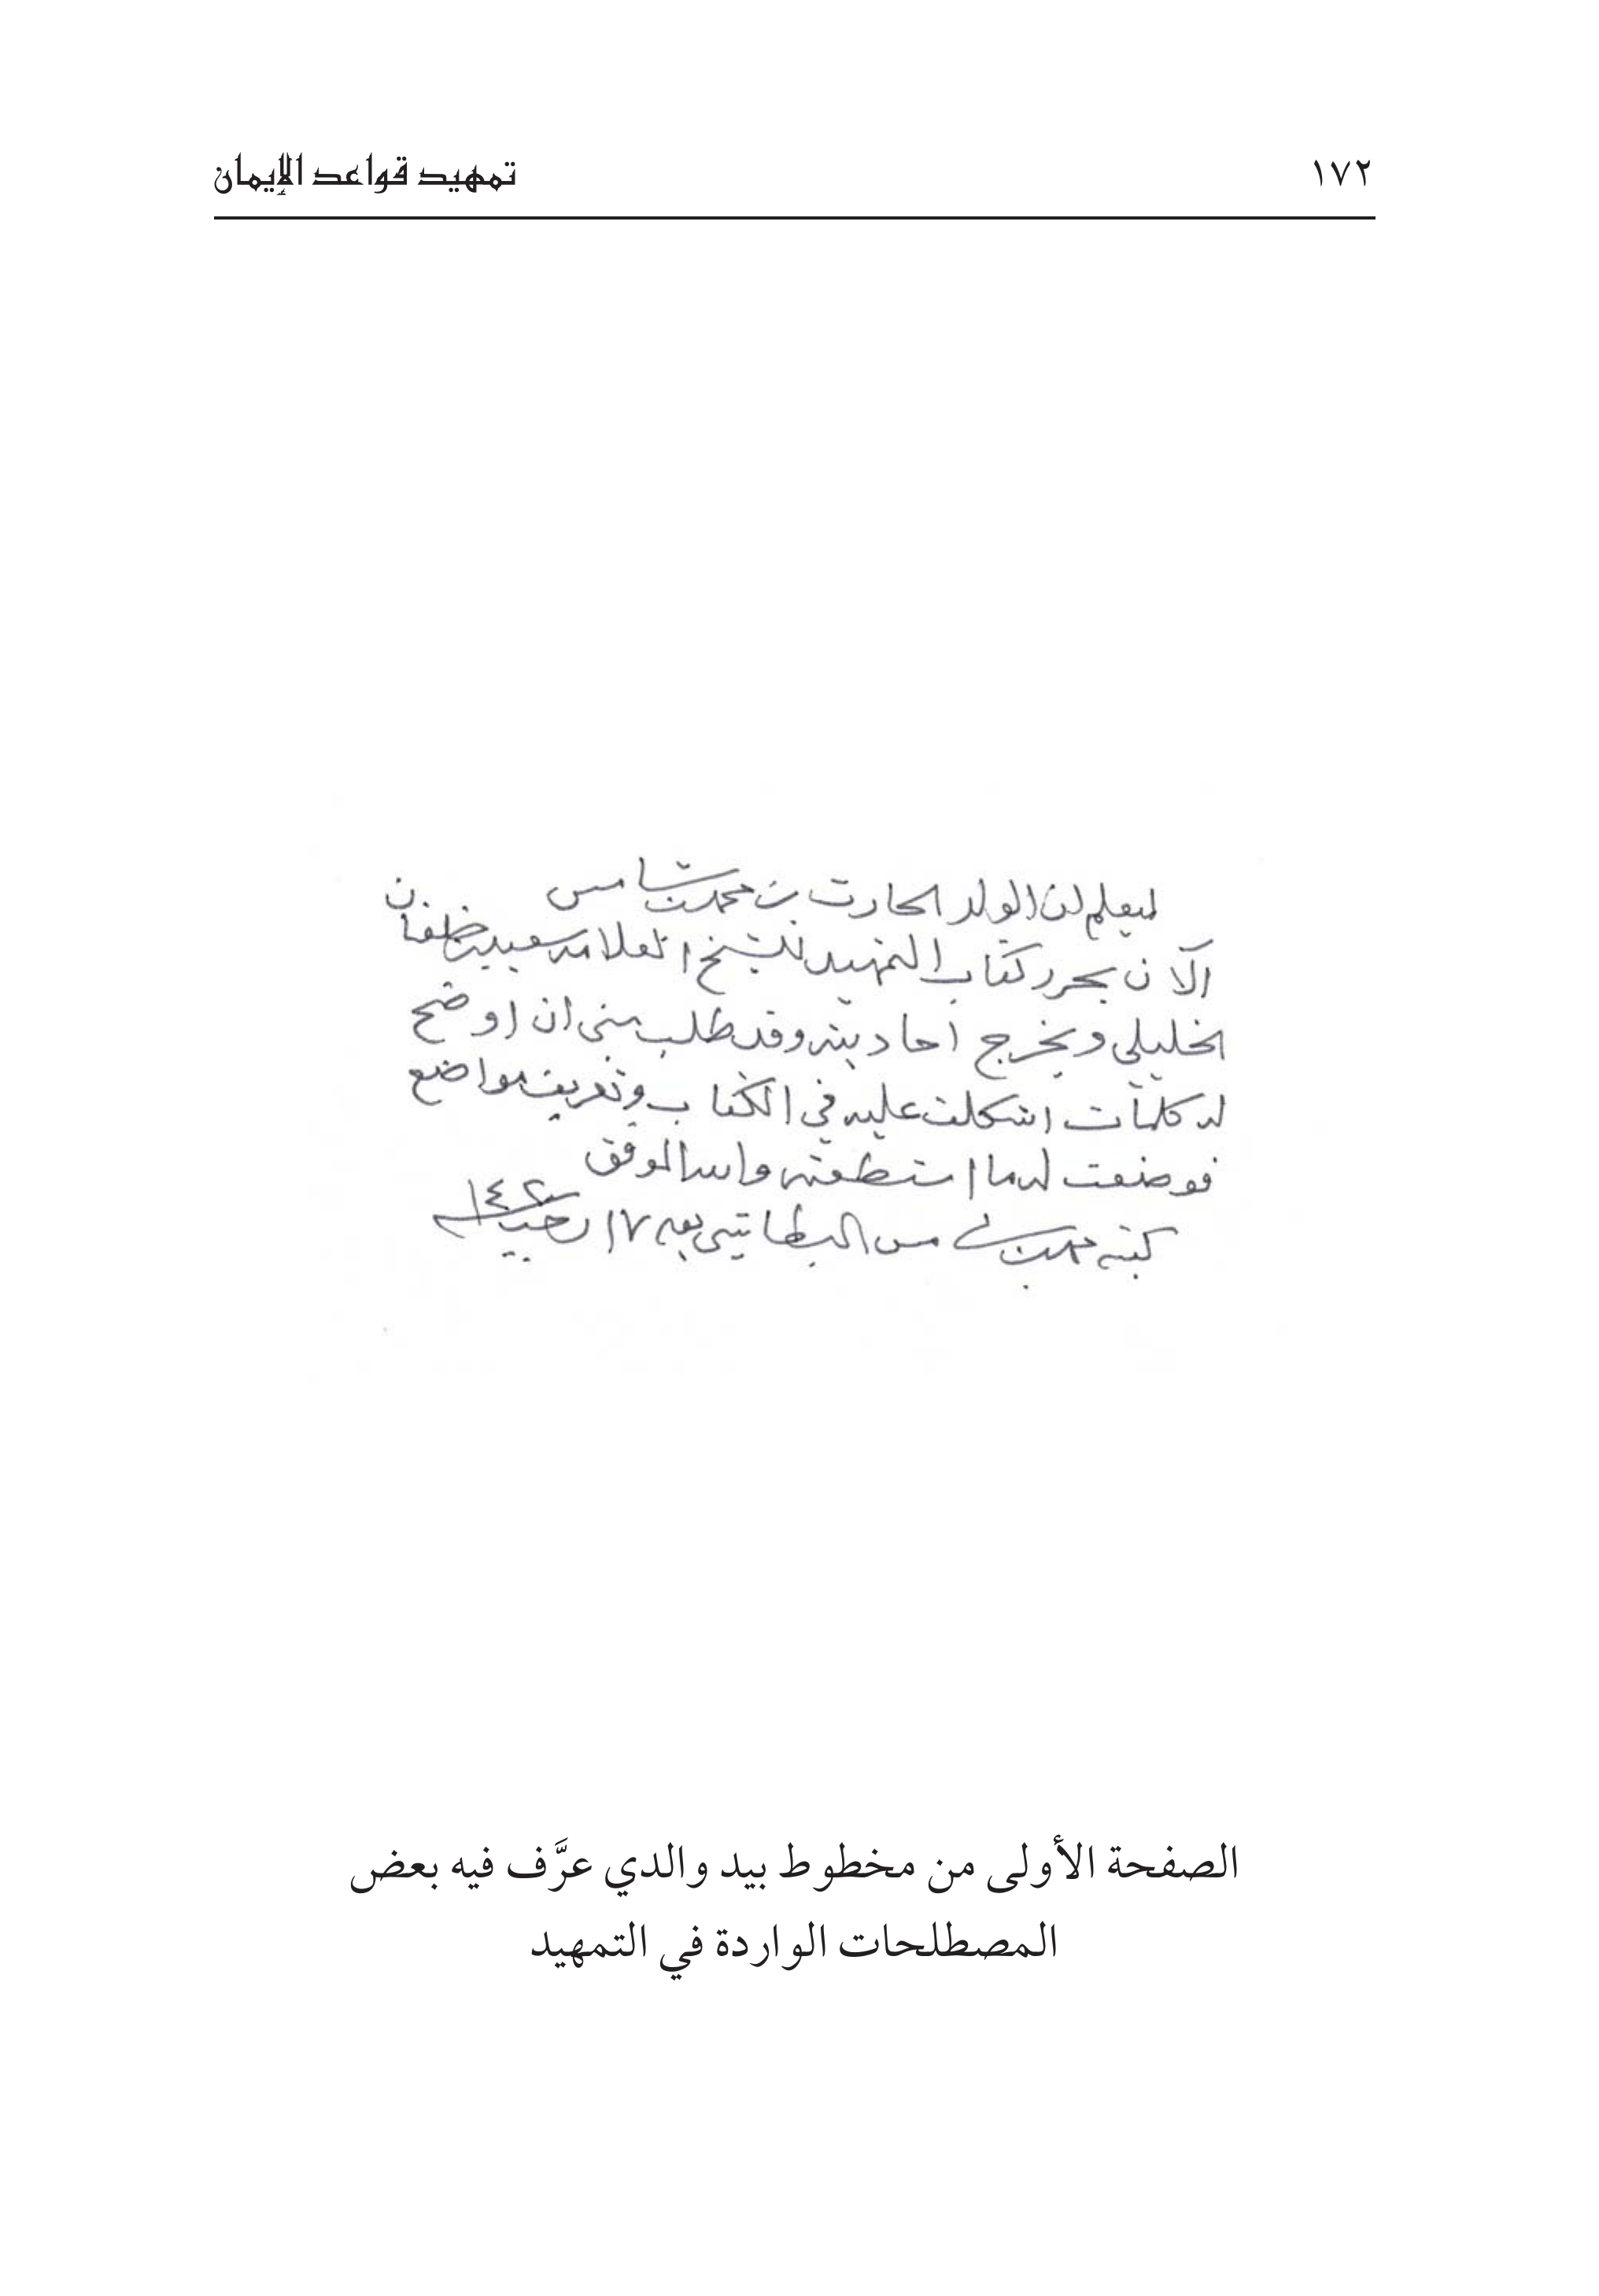 ١٧٢
تمهيد قواعد الإيمان
ليعلم ان الولد الحارث بن محمد بن شامس
الآن يحرر كتاب التمهيد للشيخ العلامه سعيد بن خلفان
الخليلي ويخرج احاديثه وقد طلب مني ان اوضح
له كلمات اشكلت عليه في الكتاب وتعريف مواضع
فوضعت له ما استطعته والله الموفق
كتبه محمد بن شامس البطاشي بيده ١٧ رجب
الصفحة الأولى من مخطوط بيد والدي عرَّف فيه بعض
المصطلحات الواردة في التمهيد